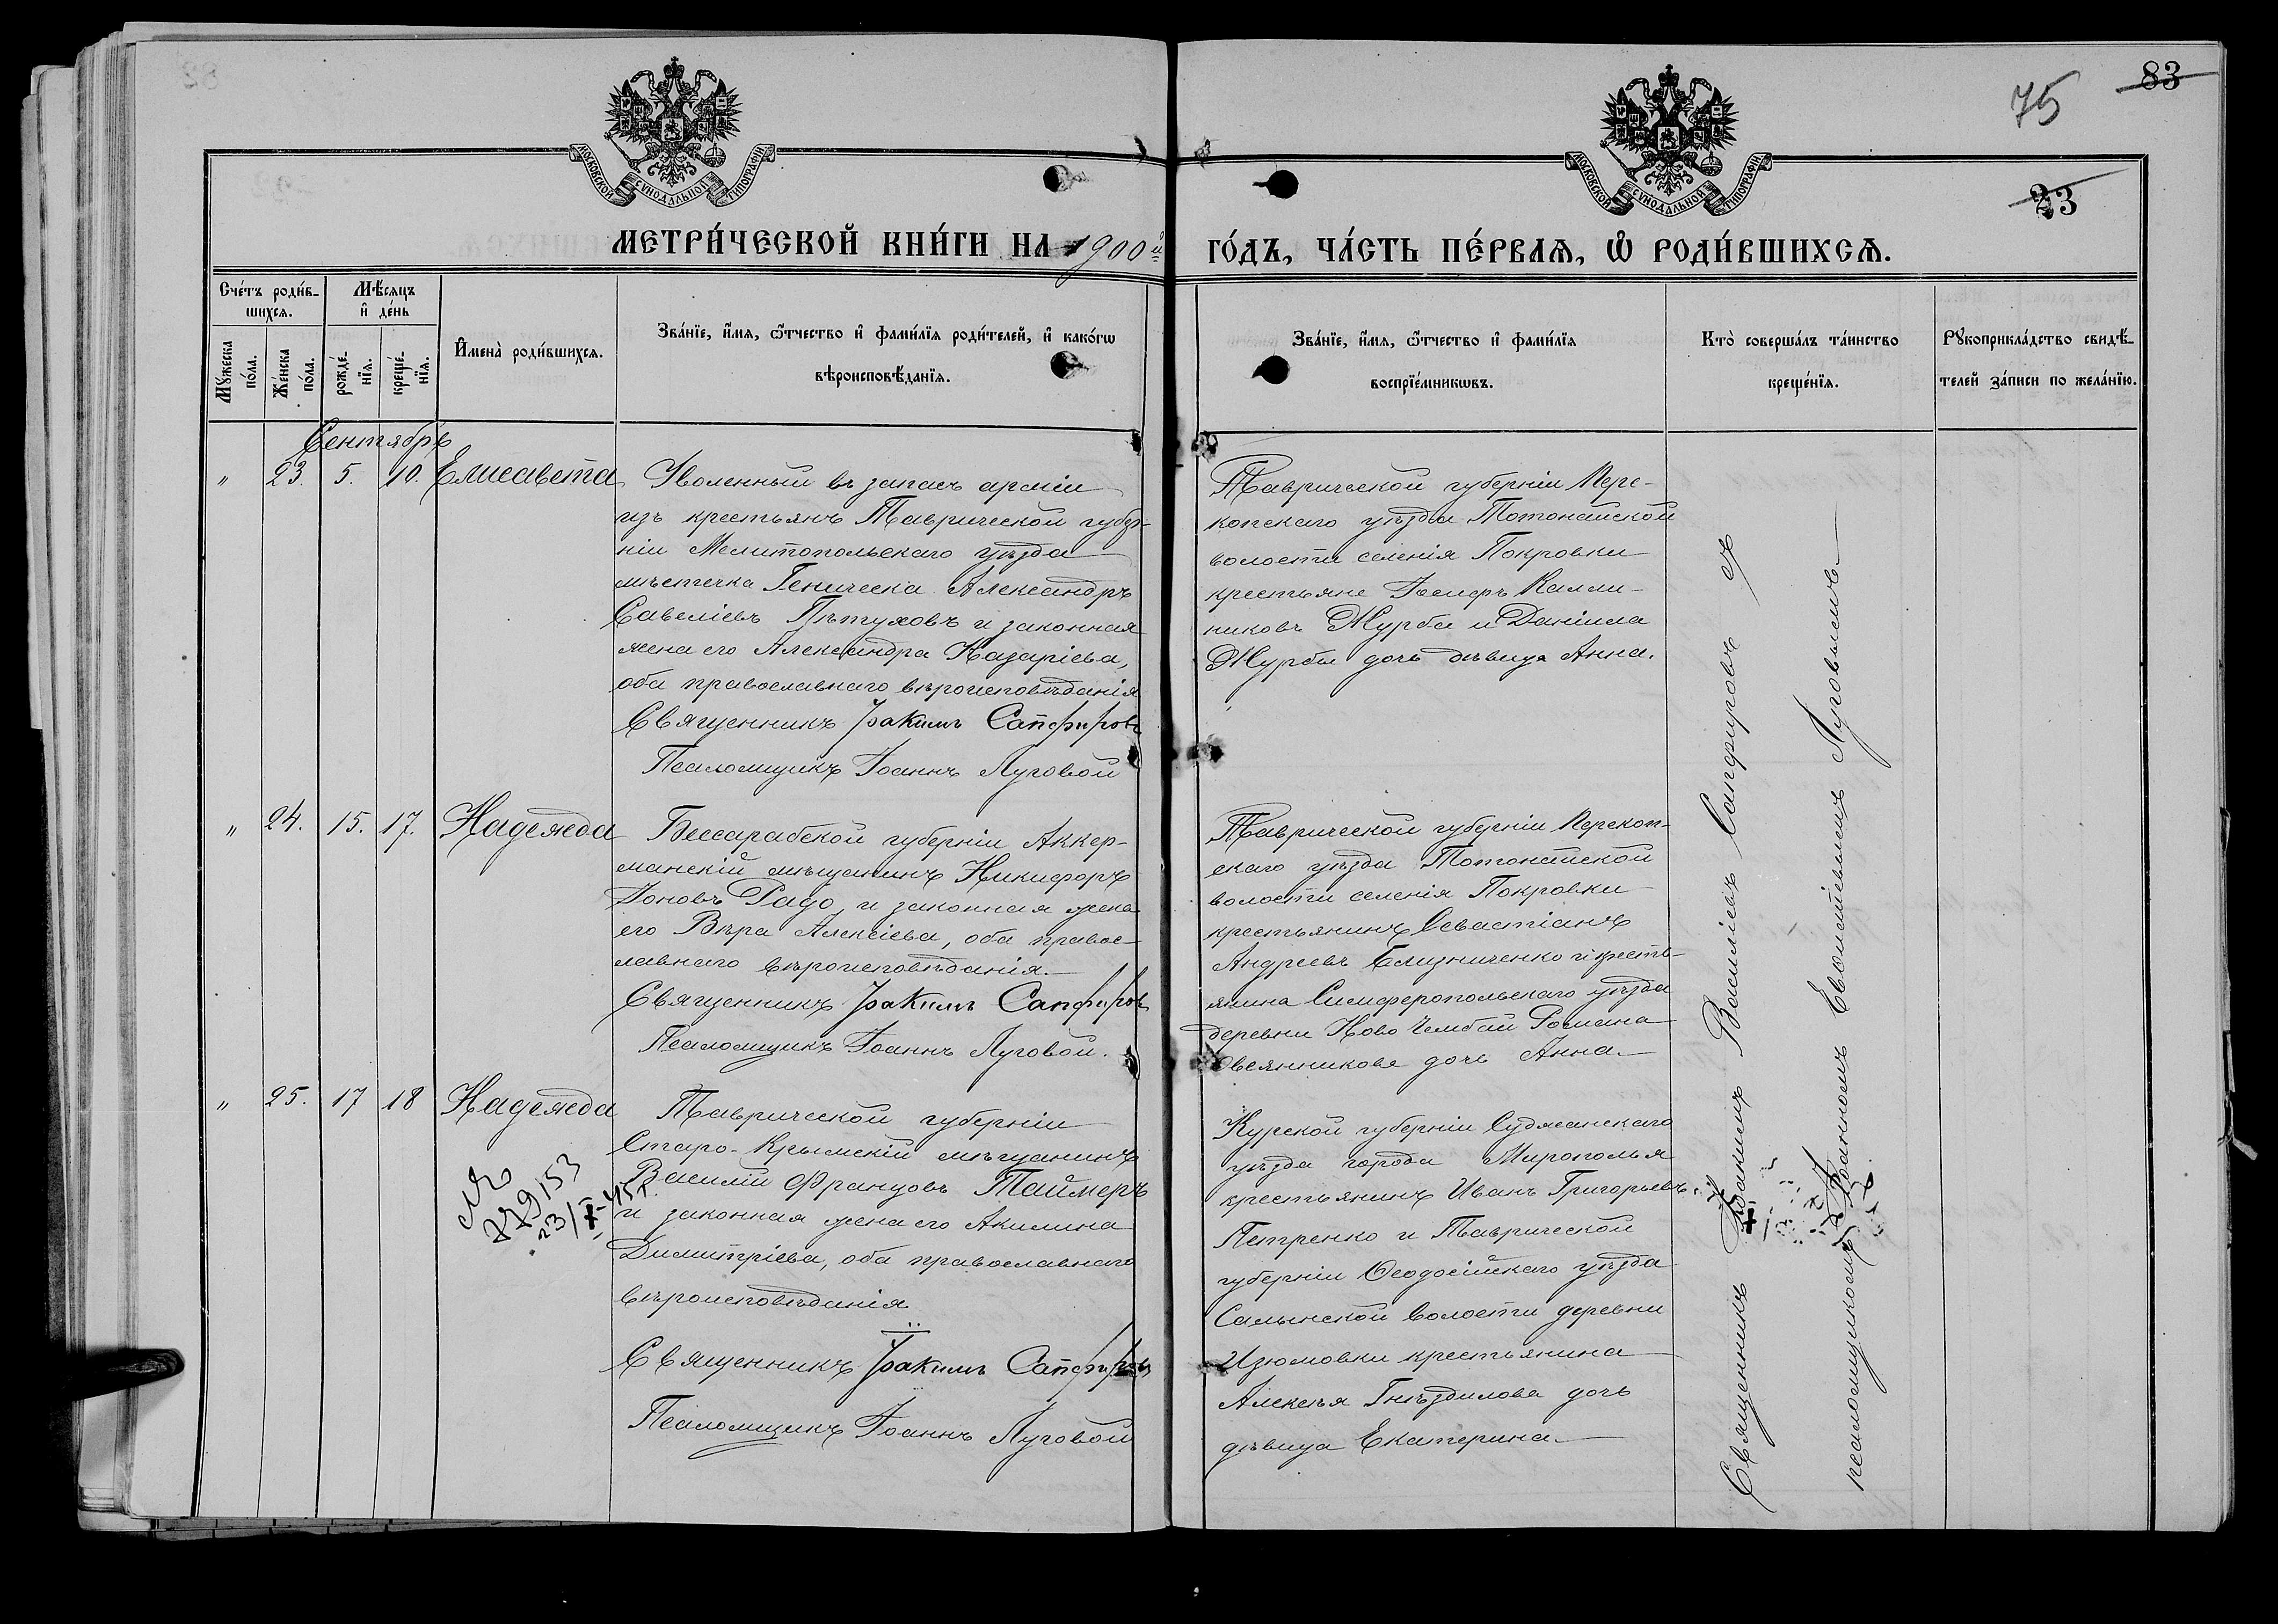 83
75
23
МОСКОВСКОЙ СѴНОДАЛЬНОЙ ТИПОГРАФІИ
МОСКОВСКОЙ СѴНОДАЛЬНОЙ ТИПОГРАФІИ
МЕТРИ́ЧЕСКОЙ КНИ́ГИ НА 1900й
ГО́ДЪ, ЧА́СТЬ ПЕ́РВАѦ, Ѡ РОДИ́ВШИХСѦ.
Сче́тъ роди́в-
шихсѧ.
Мѣ́сяцъ
и҆ де́нь
Мꙋ́жеска по́ла.
Же́нска по́ла.
рожде́-нїѧ.
креще́-нїѧ.
И҆мена̀ роди́вшихсѧ.
Зва́нїе, и҆́мѧ, ѻ҆́тчество и҆ фами́лїѧ роди́телей, и҆ како́гѡ
вѣроисповѣ́данїѧ.
Зва́нїе, и҆́мѧ, ѻ҆́тчество и҆ фами́лїѧ
воспрїе́мникѡвъ.
Кто̀ соверша́лъ та́инство
креще́нїѧ.
Рꙋкоприкла́дство свидѣ́-
телей за́писи по жела́нїю.
Сентябрь
" 23. 5. 10. Елисавета
Уволенный въ запасъ арміи
изъ крестьянъ Таврической губер-
ніи Мелитопольскаго уѣзда
мѣстечка Геническа Александръ
Савеліевъ Пѣтуховъ и законная
жена его Александра Назаріева,
оба православнаго вѣроисповѣданія
Священникъ Іоакимъ Сапфировъ
Псаломщикъ Іоаннъ Луговой
Таврической губерніи Пере-
копскаго уѣзда Тотонайской
волости селенія Покровки
крестьяне Іосифъ Калли-
никовъ Журба и Даніила
Журбы дочь дѣвица Анна.
" 24. 15. 17. Надежда
Бессарабской губерніи Аккер-
манскій мѣщанинъ Никифоръ
Іоновъ Радо, и законная жена
его Вѣра Алексіева, оба правос-
лавнаго вѣроисповѣданія.
Священникъ Іоакимъ Сапфировъ
Псаломщикъ Іоаннъ Луговой.
Таврической губерніи Перекоп-
скаго уѣзда Тотонайской
волости селенія Покровки
крестьянинъ Севастіанъ
Андреевъ Близниченко и кресть-
янина Симферопольскаго уѣзда
деревни Ново Чембай Романа
Овсянникова дочь Анна.
" 25. 17 18 Надежда
№
779153
23/X-45
Таврической губерніи
Старо-Крымскій мѣщанинъ
Василій Францовъ Таймеръ
и законная жена его Акилина
Димитріева, оба православнаго
вѣроисповѣданія
Священникъ Іоакимъ Сапфировъ
Псаломщикъ Іоаннъ Луговой
Курской губерніи Суджанскаго
уѣзда города Мирополья
крестьянинъ Иванъ Григорьевъ
Петренко и Таврической
губерніи Ѳеодосійскаго уѣзда
Салынской волости деревни
Изюмовки крестьянина
Алексѣя Гнѣздилова дочь
дѣвица Екатерина.
Священникъ Іоакимъ Василіевъ Сапфировъ съ
псаломщикомъ Іоанномъ Евсиміевымъ Луговымъ.